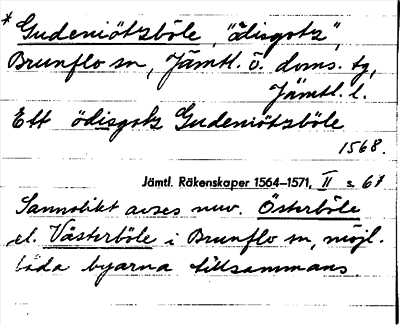 * Gudeniötzböle, "ödisgotz",
Brunflo sn, Jämtl. ö. doms. tg,
Jämtl. l.
Ett ödisgotz Gudeniötzböle
1568.
Jämtl. Räkenskaper 1564–1571, II s. 67
Sannolikt avses nuv. Österböle
el. Västerböle i Brunflo sn, möjl.
båda byarna tillsammans.